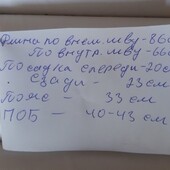 Длина по внеш. шву - 86
По внутр. шву - 66
Посадка спереди - 20 см
Сзади - 23 см
Пояс - 33 см
ПОБ - 40-43 см